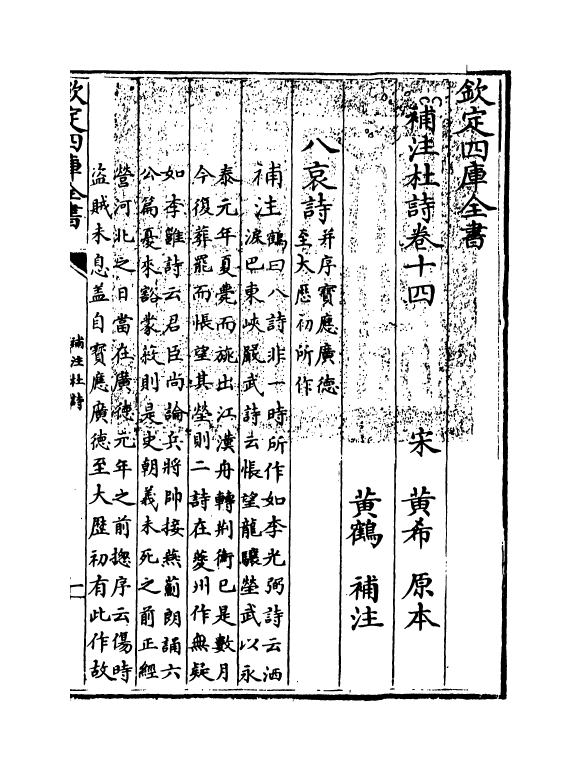 欽定四庫全書
補注杜詩卷十四
宋 黄希 原本
黄鶴 補注
八哀詩
并序寶應廣徳
至大厯初所作
補注
鶴曰八詩非一時所作如李光弼詩云洒
淚巴東峽嚴武詩去悵望龍驤塋武以永
泰元年夏薨而旅出江漢舟轉荆衡已是數月
今復葬罷而悵望其塋則二詩在夔州作無疑
如李雝詩云君臣尚論兵將帥接燕薊朗誦六
公篇憂來豁蒙蔽則是史朝義未死之前正經
營河北之日當在廣徳元年之前揔序云傷時
盗賊未息盖自寶應廣徳至大歴初有此作故
欽定四庫全書
補注杜詩
一